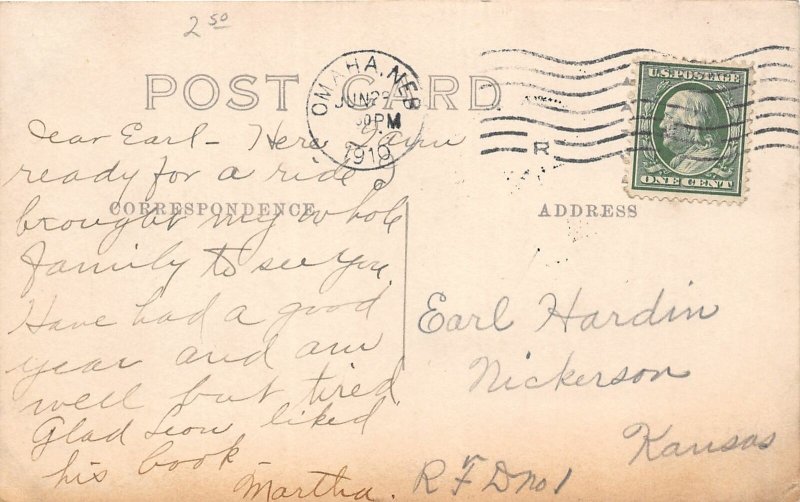 2 50
POST CARD
OMAHA, NEB
JUN 29
30 PM
1910
R
U.S. POSTAGE
ONE CENT
CORRESPONDENCE
ADDRESS
Dear Earl - Here I am
ready for a ride
brought my whole
family to see you
Have had a good
year and am
well but tired
Glad Leon liked
his book -
Martha.
Earl Hardin
Nickerson
Kansas
R F D no 1